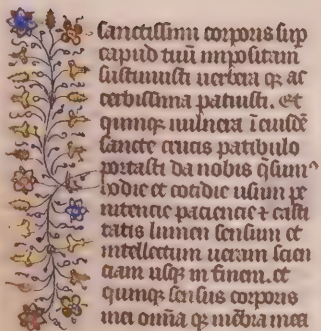 sanctissimi corporis sup
capud tuū impositam
sustinuisti uerbera qꝫ ac
cerbissima patiuisti. Et
qumqꝫ uulnera ī eiusdē
sancte crucis patibulo
portasti da nobis q̄sumꝰ
hodie et cotidie usum pe
nitencie paciencie ⁊ casti
tatis lumen sensum et
intellectum uerum scien
ciam usqꝫ in finem. et
qumqꝫ sensus corporis
mei omīa qꝫ mēbra mea